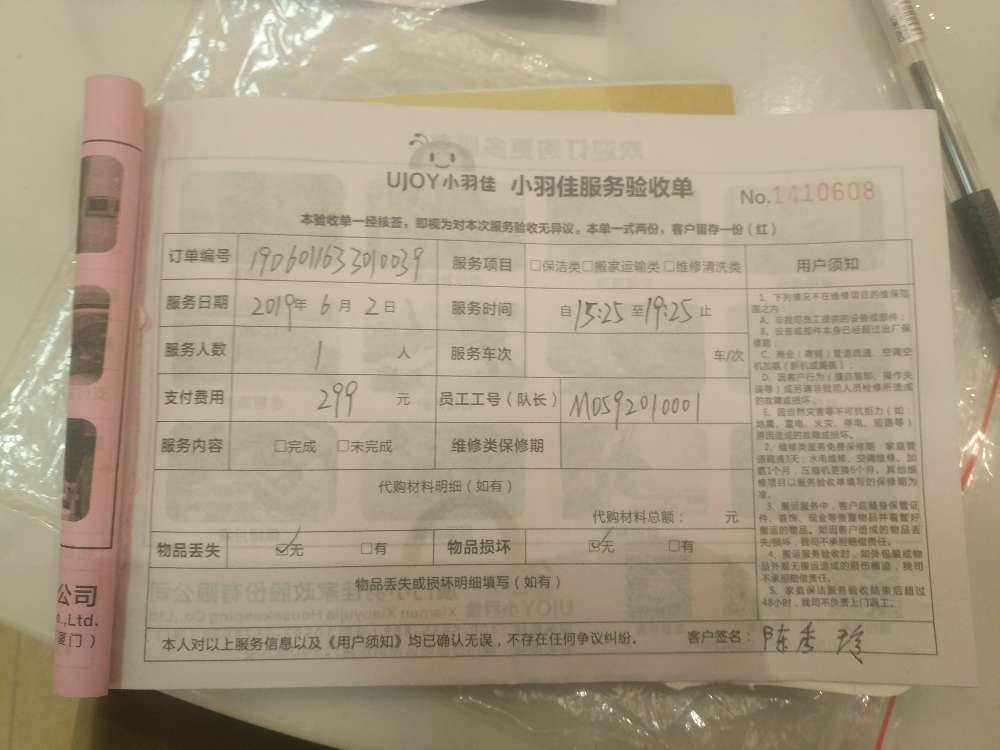 UJOY小羽佳 小羽佳服务验收单
No.1410608
本验收单一经核签，即视为对本次服务验收无异议。本单一式两份，客户留存一份（红）
订单编号 1906011633010039 服务项目 □保洁类□搬家运输类□维修清洗类 用户须知
服务日期 2019年 6月 2日 服务时间 自15:25至19:25止
服务人数 1 人 服务车次 车/次
支付费用 299 元 员工工号（队长） M0592010001
服务内容 □完成 □未完成 维修类保修期
代购材料明细（如有）
代购材料总额： 元
物品丢失 ☑无 □有 物品损坏 ☑无 □有
物品丢失或损坏明细填写（如有）
本人对以上服务信息以及《用户须知》均已确认无误，不存在任何争议纠纷。 客户签名：陈秀玲
1、下列情况不在维修项目的维保范
围之内：
A、非我司员工提供的设备或部件；
B、设备或部件本身已经超过出厂保
修期；
C、商业（商铺）管道疏通、空调空
机加氨（新机或播氨）；
D、因客户行为（擅自装卸、操作失
误等）或另请非我司人员检修所造成
的故障或损坏；
E、因自然灾害等不可抗拒力（如：
地震、雷电、火灾、停电、短路等）
原因造成的故障或损坏。
2、维修类服务免费保修期：家庭管
道疏通3天；水电维修、空调维修、加
氨1个月，压缩机更换6个月。其他维
修项目以服务验收单填写的保修期为
准。
3、搬运服务中，客户应随身保管证
件、首饰、现金等贵重物品并看管好
搬运的物品。如因客户造成的物品丢
失/损坏，我司不承担赔偿责任。
4、搬运服务验收时，如外包装或物
品外观无搬运造成的损伤痕迹，我司
不承担赔偿责任。
5、家庭保洁服务验收结束后超过
48小时，我司不负责上门返工。
公司
o.,Ltd.
厦门）